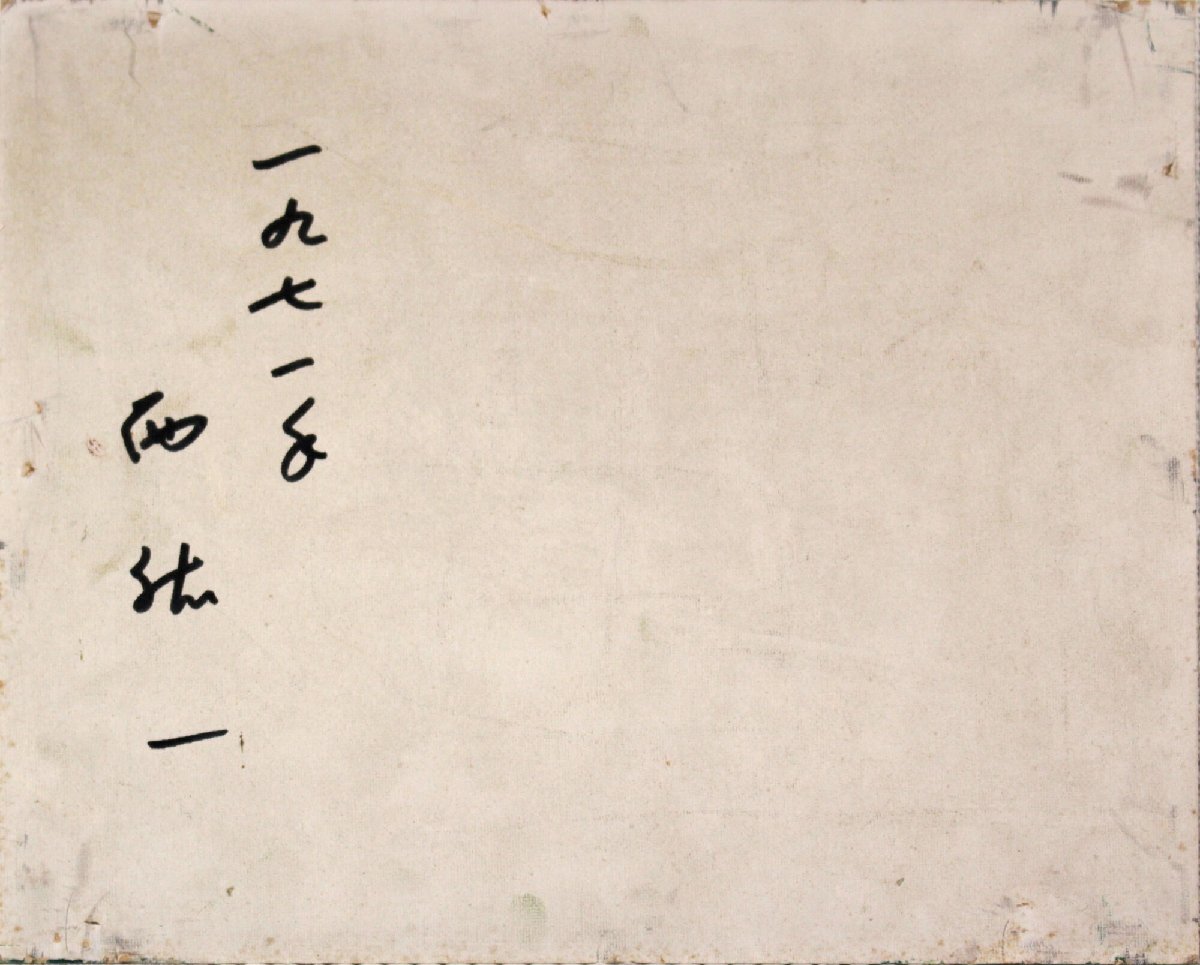 一九七一年
西紘一